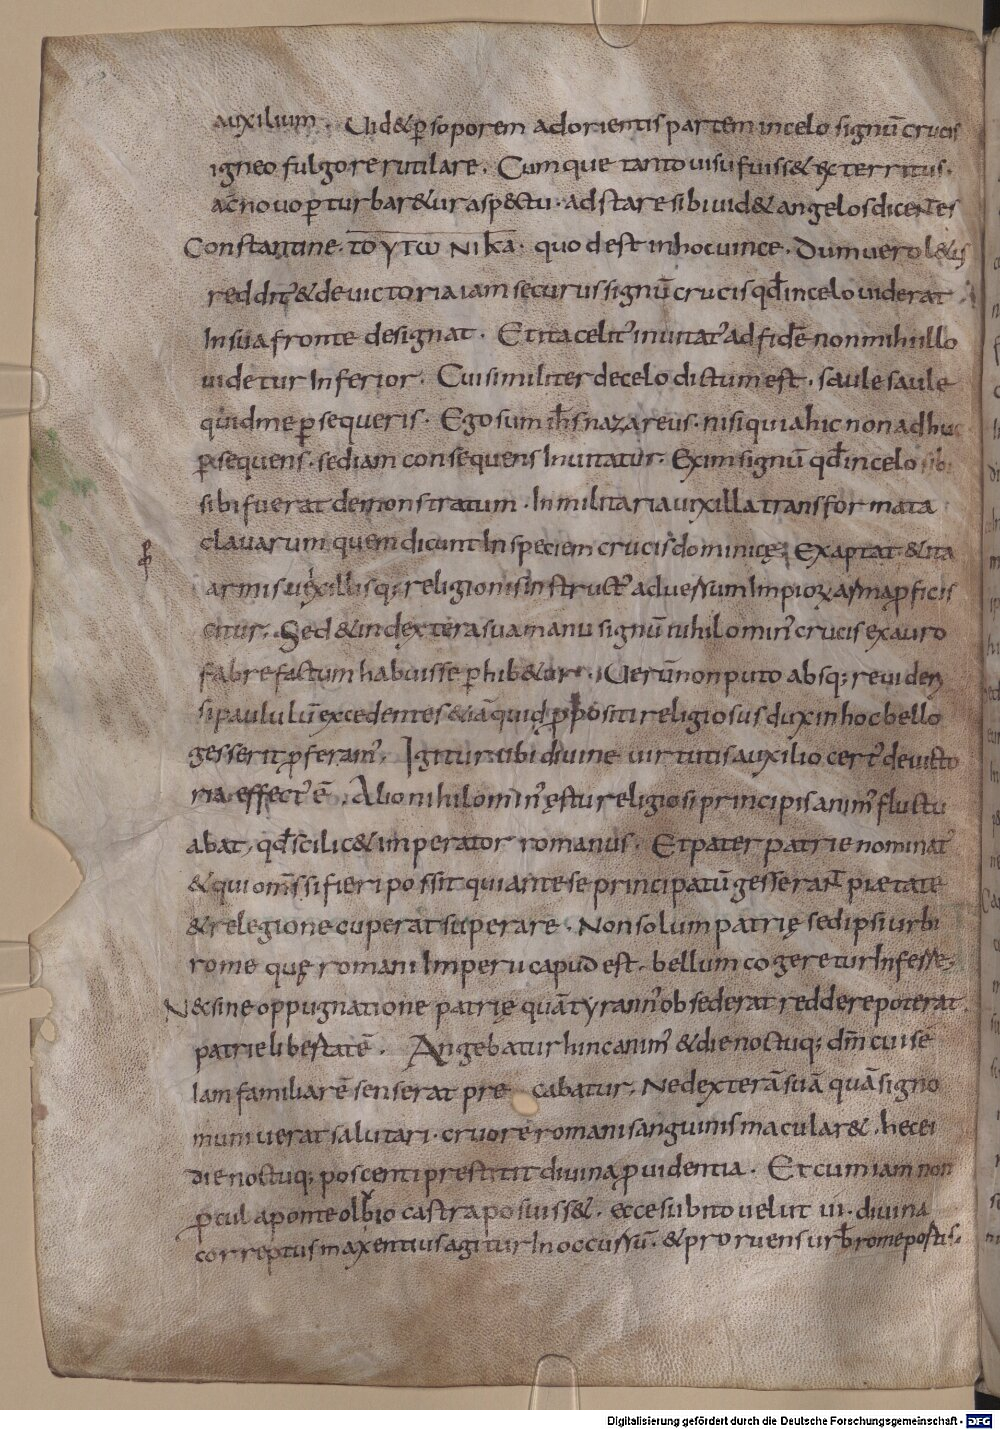 auxilium. Uid& ꝑ soporem ad orientis partem in celo signū crucis
igneo fulgore rutilare. Cum que tanto uisu fuiss& exterritus.
ac nouo ꝑturbar&ur asp&tu. adstare sibi uid& angelos dicentes
Constantine. το υτω νικα. quod est in hoc uince. Dum uero l&us
reddit' & de uictoria iam securus signū crucis qđ in celo uiderat
In sua fronte designat. Et ita celit' inuitat' ad fidē non mihi illo
uidetur Inferior. Cui similiter de celo dictum est. saule saule
quid me ꝑsequeris. Ego sum ih̄s nazareus. nisi quia hic non adhuc
ꝑsequens. sed iam consequens Inuitatur. Exim signū qđ in celo sibi
sibi fuerat demonstratum. In militaria uixilla transformata
clauarum quem dicunt In speciem crucis dominicę; Exaptat & ita
armis uexillisq; religionis instruct' aduersum Impioꝝ arma ꝓficis
citur. Sed & in dextera sua manu signū nihilomin' crucis ex auro
fabrefactum habuisse ꝑhib&ur. Uerū non puto absq; re uideri
si paululū excedentes &iā quid ꝓpositi religiosus dux in hoc bello
gesserit ꝓferam'. Igitur ubi diuine uirtutis auxilio cert' de uicto
ria effect' ē. Alio nihilomin' ęstu religiosi principis anim' fluctu
abat, qđ scilic& imperator romanus. Et pater patrie nominat'
& qui om̄s si fieri possit qui ante se principatū gesserant pietate
& relegione cuperat superare. Non solum patrię sed ipsi urbi
rome quę romani Imperii capud est. bellum cogeretur Inferre;
N& sine oppugnatione patrię quā tyrann' obsederat reddere poterat
patrie libertatē. Angebatur hinc anim' & die noctuq; dm̄ cui se
Iam familiarē senserat pre cabatur, Ne dexterā suā quā signo
muniuerat salutari. cruore romani sanguinis macular&. hec ei
die noctuq; poscenti prestitit diuina ꝓuidentia. Et cum iam non
ꝓcul a ponte olbio castra posuiss&. ecce subito uelut ui. diuina
correptus maxentius agitur In occursū. & proruens urb̄ rome postis.
ꝓ
Digitalisierung gefördert durch die Deutsche Forschungsgemeinschaft - DFG